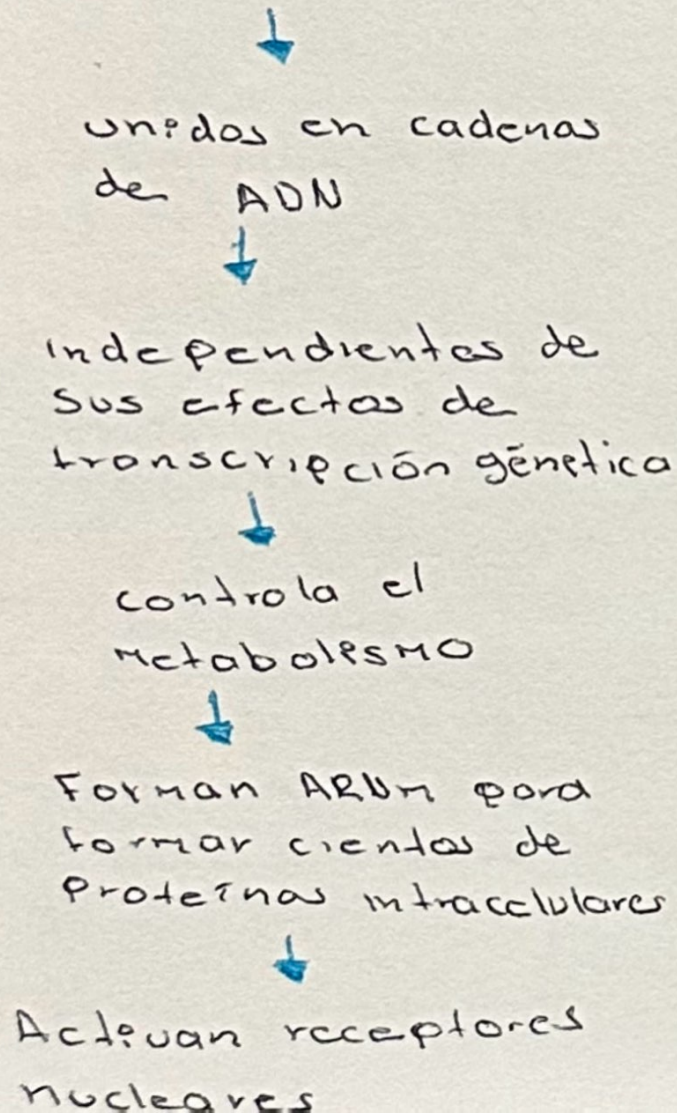 unidos en cadenas
de ADN
independientes de
sus efectos de
transcripción génetica
controla el
Metabolismo
Forman ARNm para
formar cientos de
proteínas intracelulares
Activan receptores
nucleares